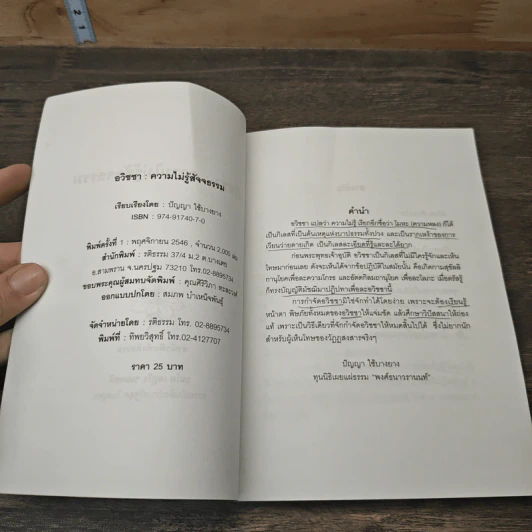 อวิชชา : ความไม่รู้สัจจธรรม
เรียบเรียงโดย : ปัญญา ใช้บางยาง
ISBN : 974-91740-7-0
พิมพ์ครั้งที่ 1 : พฤศจิกายน 2546 , จำนวน 2,000 เล่ม
สำนักพิมพ์ : รติธรรม 37/4 ม.2 ต.บางเตย
อ.สามพราน จ.นครปฐม 73210 โทร.02-8895734
ขอบพระคุณผู้สมทบจัดพิมพ์ : คุณศิริวิภา
ออกแบบปกโดย : สมภพ บำเหน็จพันธุ์
จัดจำหน่ายโดย : รติธรรม โทร. 02-8895734
พิมพ์ที่ : ทิพยวิสุทธิ์ โทร.02-4127707
ราคา 25 บาท
คำนำ
อวิชชา แปลว่า ความไม่รู้ เรียกอีกชื่อว่า โมหะ (ความหลง) ก็ได้
เป็นกิเลสที่เป็นต้นเหตุแห่งบาปธรรมทั้งปวง และเป็นรากเหง้าของการ
เวียนว่ายตายเกิด เป็นกิเลสละเอียดที่รู้และละได้ยาก
ก่อนพระพุทธเจ้าอุบัติ อวิชชาเป็นกิเลสที่ไม่มีใครรู้จักและเห็น
โทษมาก่อนเลย ดังจะเห็นได้จากข้อปฏิบัติในสมัยนั้น คือเกิดกามสุขัลลิ
กานุโยคเพื่อละความโกรธ และอัตตกิลมถานุโยค เพื่อละโลภะ เมื่อตรัสรู้
ก็ทรงบัญญัติมัชฌิมาปฏิปทาเพื่อละอวิชชานี้
การกำจัดอวิชชามิใช่จักทำได้โดยง่าย เพราะจะต้องเรียนรู้
หน้าตา พิษภัยทั้งหมดของอวิชชาให้แจ่มชัด แล้วศึกษาวิปัสสนาให้ถ่อง
แท้ เพราะเป็นวิธีเดียวที่จักกำจัดอวิชชาให้หมดสิ้นไปได้ ซึ่งไม่ยากนัก
สำหรับผู้เห็นโทษของวัฏฏสงสารจริงๆ
ปัญญา ใช้บางยาง
ทุนนิธิเผยแผ่ธรรม "พงศ์ธนาวรานนท์"